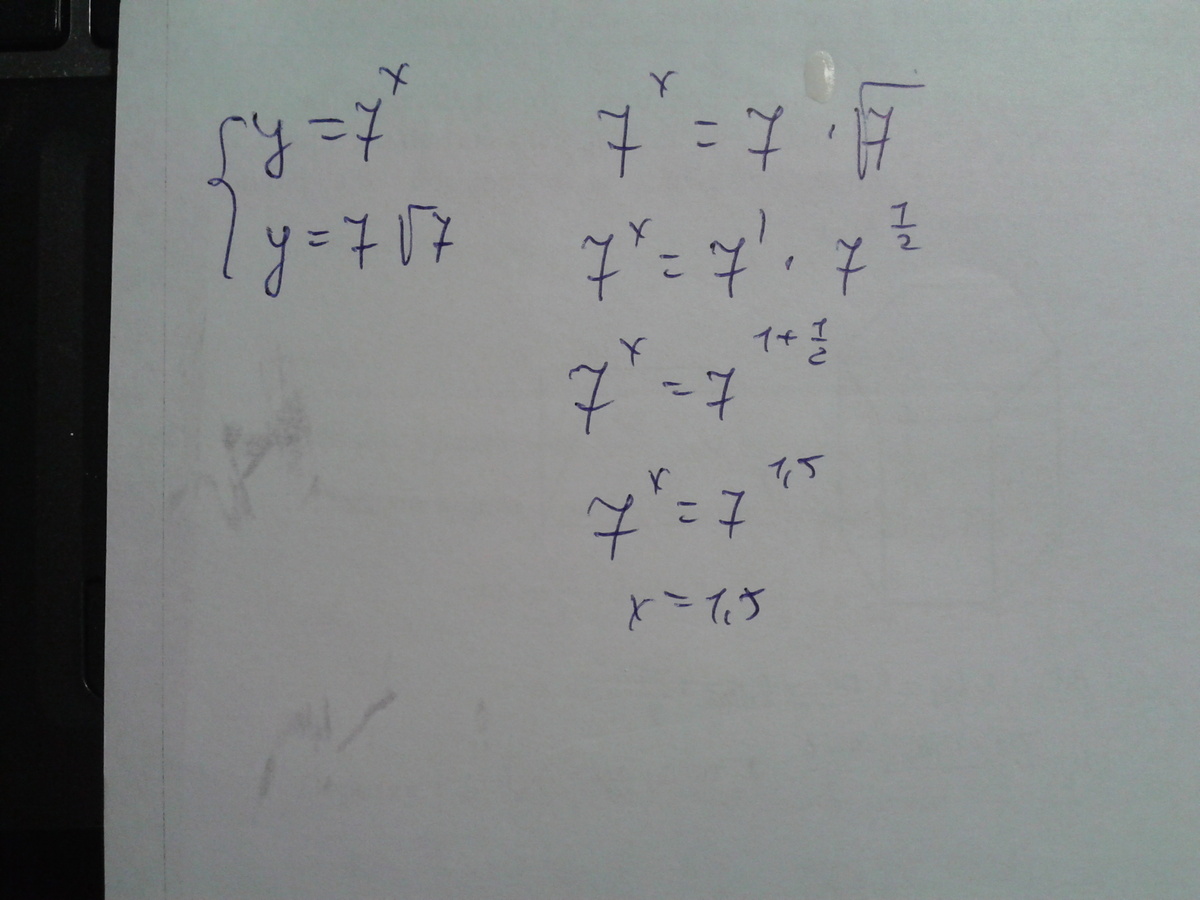 y = 7^x
y = 7√7
7^x = 7 · √7
7^x = 7^1 · 7^(1/2)
7^x = 7^(1+1/2)
7^x = 7^1,5
x = 1,5